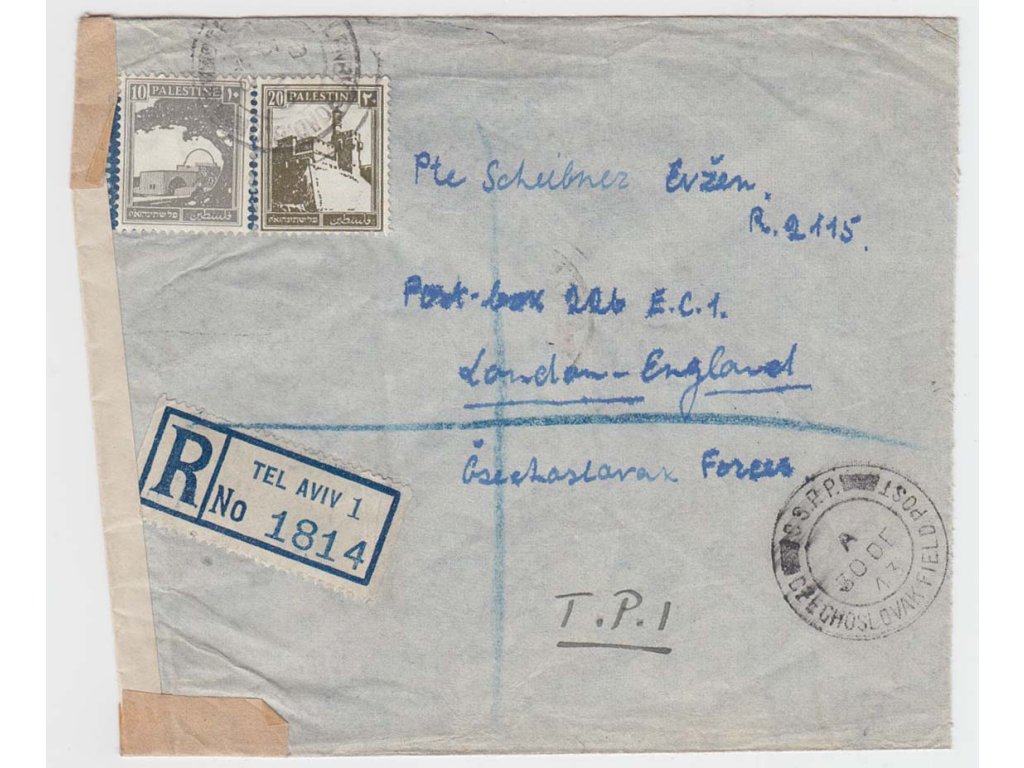 10 PALESTINE ١٠
فلسطين פלשתינה א״י
20 PALESTINE ٢٠
فلسطين פלשתינה א״י
Pte Scheibner Evžen.
R. 2115.
Post-box 226 E.C.1.
London-England
Čsechoslovak Forces
R TEL AVIV 1
No 1814
T.P.1
Č.S.P.P. FIELD POST
A
30 DE
43
CZECHOSLOVAK